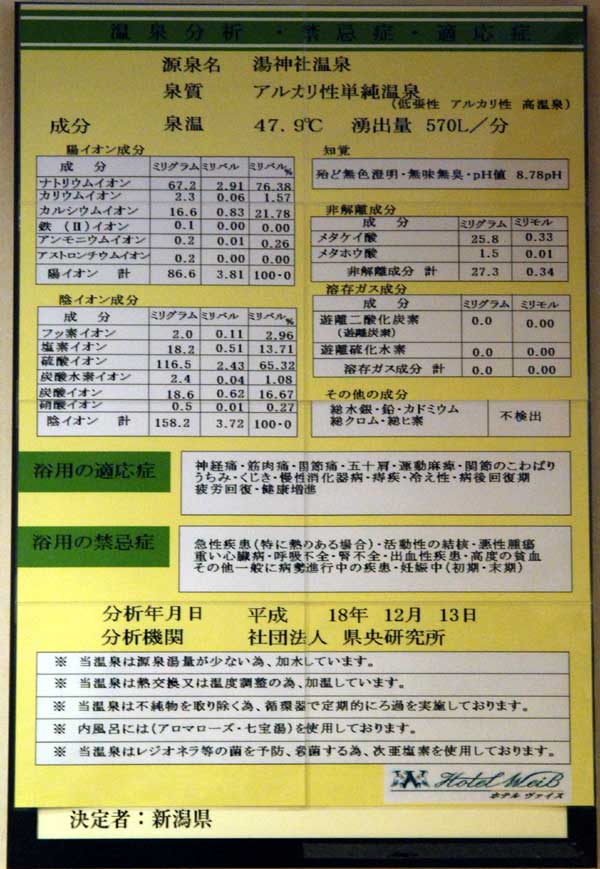 温泉分析・禁忌症・適応症
源泉名 湯神社温泉
泉質 アルカリ性単純温泉
(低張性 アルカリ性 高温泉)
成分 泉温 47.9℃ 湧出量 570L／分
陽イオン成分
成 分 ミリグラム ミリバル ミリバル%
ナトリウムイオン 67.2 2.91 76.38
カリウムイオン 2.3 0.06 1.57
カルシウムイオン 16.6 0.83 21.78
鉄 (Ⅱ)イオン 0.1 0.00 0.00
アンモニウムイオン 0.2 0.01 0.26
アストロンチウムイオン 0.2 0.00 0.00
陽イオン 計 86.6 3.81 100·0
陰イオン成分
成 分 ミリグラム ミリバル ミリバル%
フッ素イオン 2.0 0.11 2.96
塩素イオン 18.2 0.51 13.71
硫酸イオン 116.5 2.43 65.32
炭酸水素イオン 2.4 0.04 1.08
炭酸イオン 18.6 0.62 16.67
硝酸イオン 0.5 0.01 0.27
陰イオン 計 158.2 3.72 100·0
知覚
殆ど無色澄明・無味無臭・pH値 8.78pH
非解離成分
成 分 ミリグラム ミリモル
メタケイ酸 25.8 0.33
メタホウ酸 1.5 0.01
非解離成分 計 27.3 0.34
溶存ガス成分
成 分 ミリグラム ミリモル
遊離二酸化炭素 0.0 0.00
(遊離炭素)
遊離硫化水素 0.0 0.00
溶存ガス成分 計 0.0 0.00
その他の成分
総水銀・鉛・カドミウム
総クロム・総ヒ素
不検出
浴用の適応症
神経痛・筋肉痛・関節痛・五十肩・運動麻痺・関節のこわばり
うちみ・くじき・慢性消化器病・痔疾・冷え性・病後回復期
疲労回復・健康増進
浴用の禁忌症
急性疾患(特に熱のある場合)・活動性の結核・悪性腫瘍
重い心臓病・呼吸不全・腎不全・出血性疾患・高度の貧血
その他一般に病勢進行中の疾患・妊娠中(初期・末期)
分析年月日 平成 18年 12月 13日
分析機関 社団法人 県央研究所
※ 当温泉は源泉湯量が少ない為、加水しています。
※ 当温泉は熱交換又は温度調整の為、加温しています。
※ 当温泉は不純物を取り除く為、循環器で定期的にろ過を実施しております。
※ 内風呂には(アロマローズ・七宝湯)を使用しております。
※ 当温泉はレジオネラ等の菌を予防、殺菌する為、次亜塩素を使用しております。
Hotel Weiß
ホテル ヴァイス
決定者：新潟県